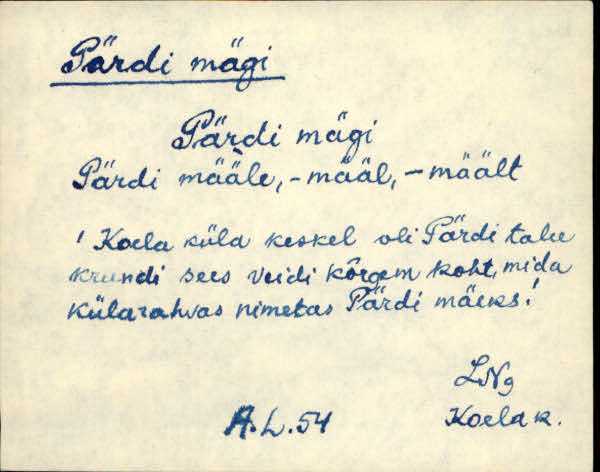 Pärdi mägi
Pärdi mägi
Pärdi määle, -määl, -mäält
! Koela küla keskel oli Pärdi talu
krundi sees veidi kõrgem koht, mida
külarahvas nimetas Pärdi mäeks!
LNg
A.L.54 Koela k.